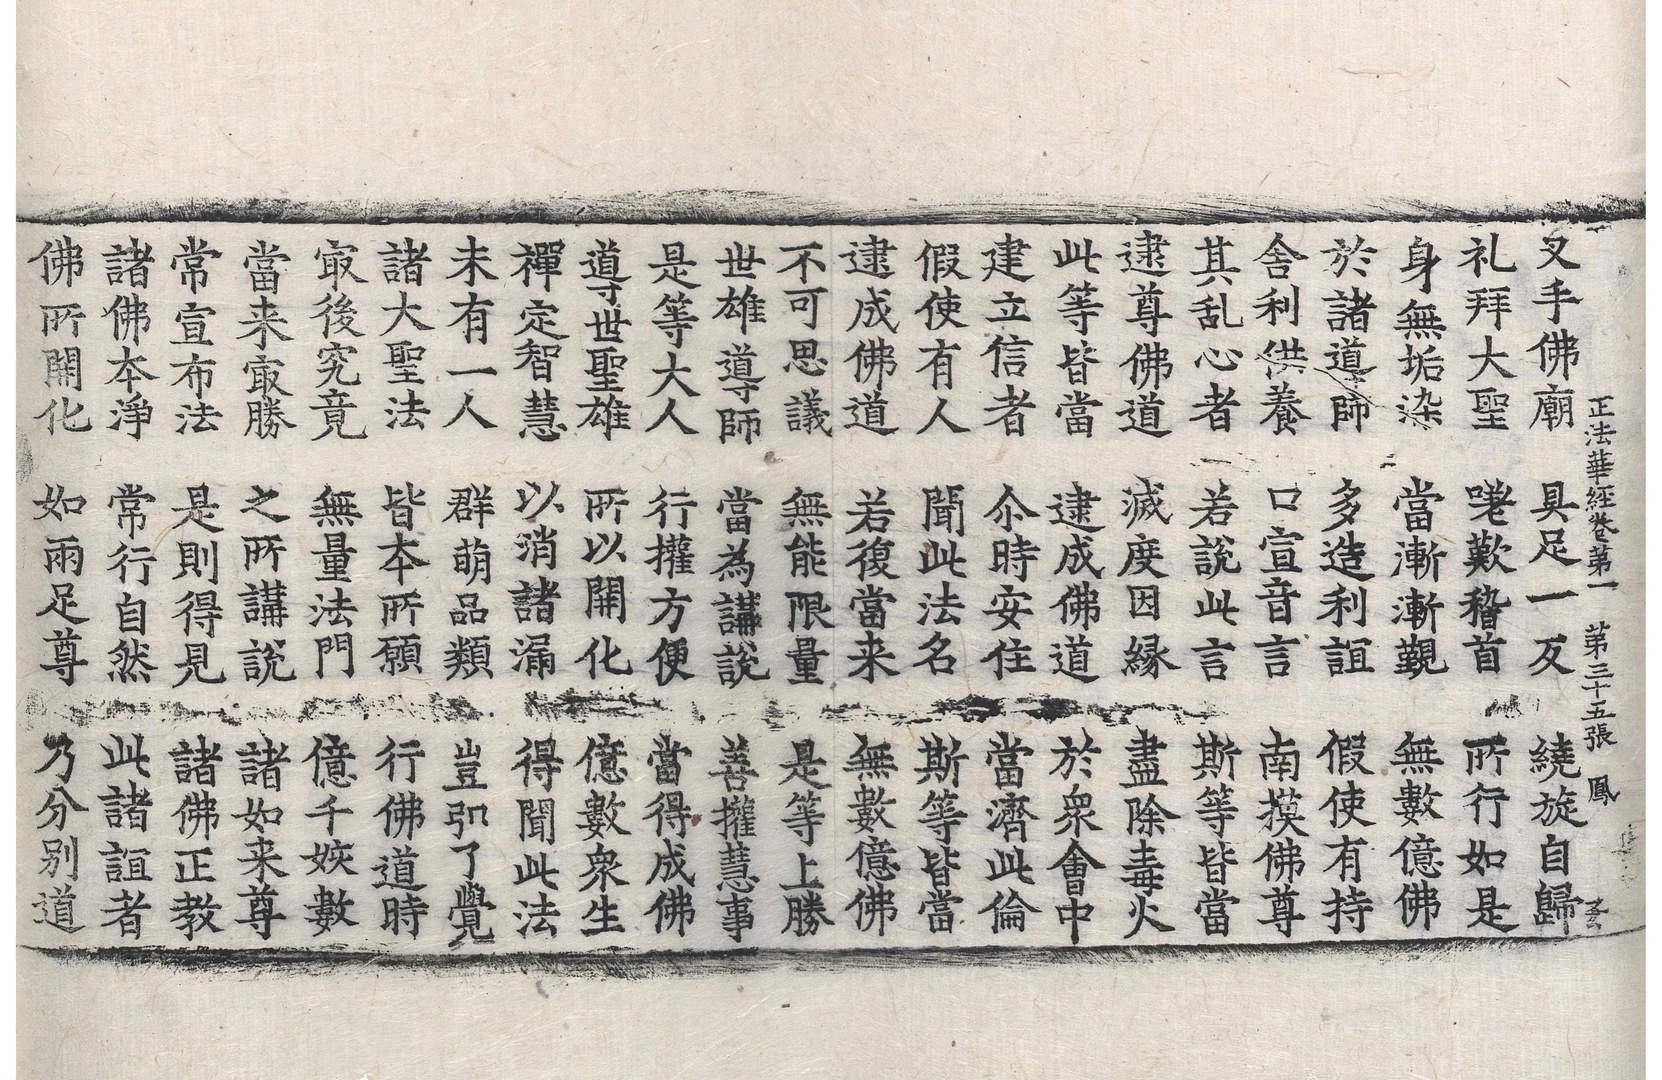 正法華經卷第一　第三十五張　鳳
叉手佛廟　具足一反　繞旋自歸
礼拜大聖　嗟歎稽首　所行如是
身無垢染　當漸漸覲　無數億佛
於諸導師　多造利誼　假使有持
舎利供養　口宣音言　南摸佛尊
其乱心者　若說此言　斯等皆當
逮尊佛道　滅度因緣　盡除毒火
此等皆當　逮成佛道　於衆會中
建立信者　尒時安住　當濟此倫
假使有人　聞此法名　斯等皆當
逮成佛道　若復當来　無數億佛
不可思議　無能限量　是等上勝
世雄導師　當為講說　善攉慧事
是等大人　行攉方便　當得成佛
導世聖雄　所以開化　億數衆生
禪定智慧　以消諸漏　得聞此法
未有一人　群萌品類　豈弘了覺
諸大聖法　皆本所願　行佛道時
㝡後究竟　無量法門　億千姟數
當来㝡勝　之所講說　諸如来尊
常宣布法　是則得見　諸佛正教
諸佛本淨　常行自然　此諸誼者
佛所開化　如兩足尊　乃分别道